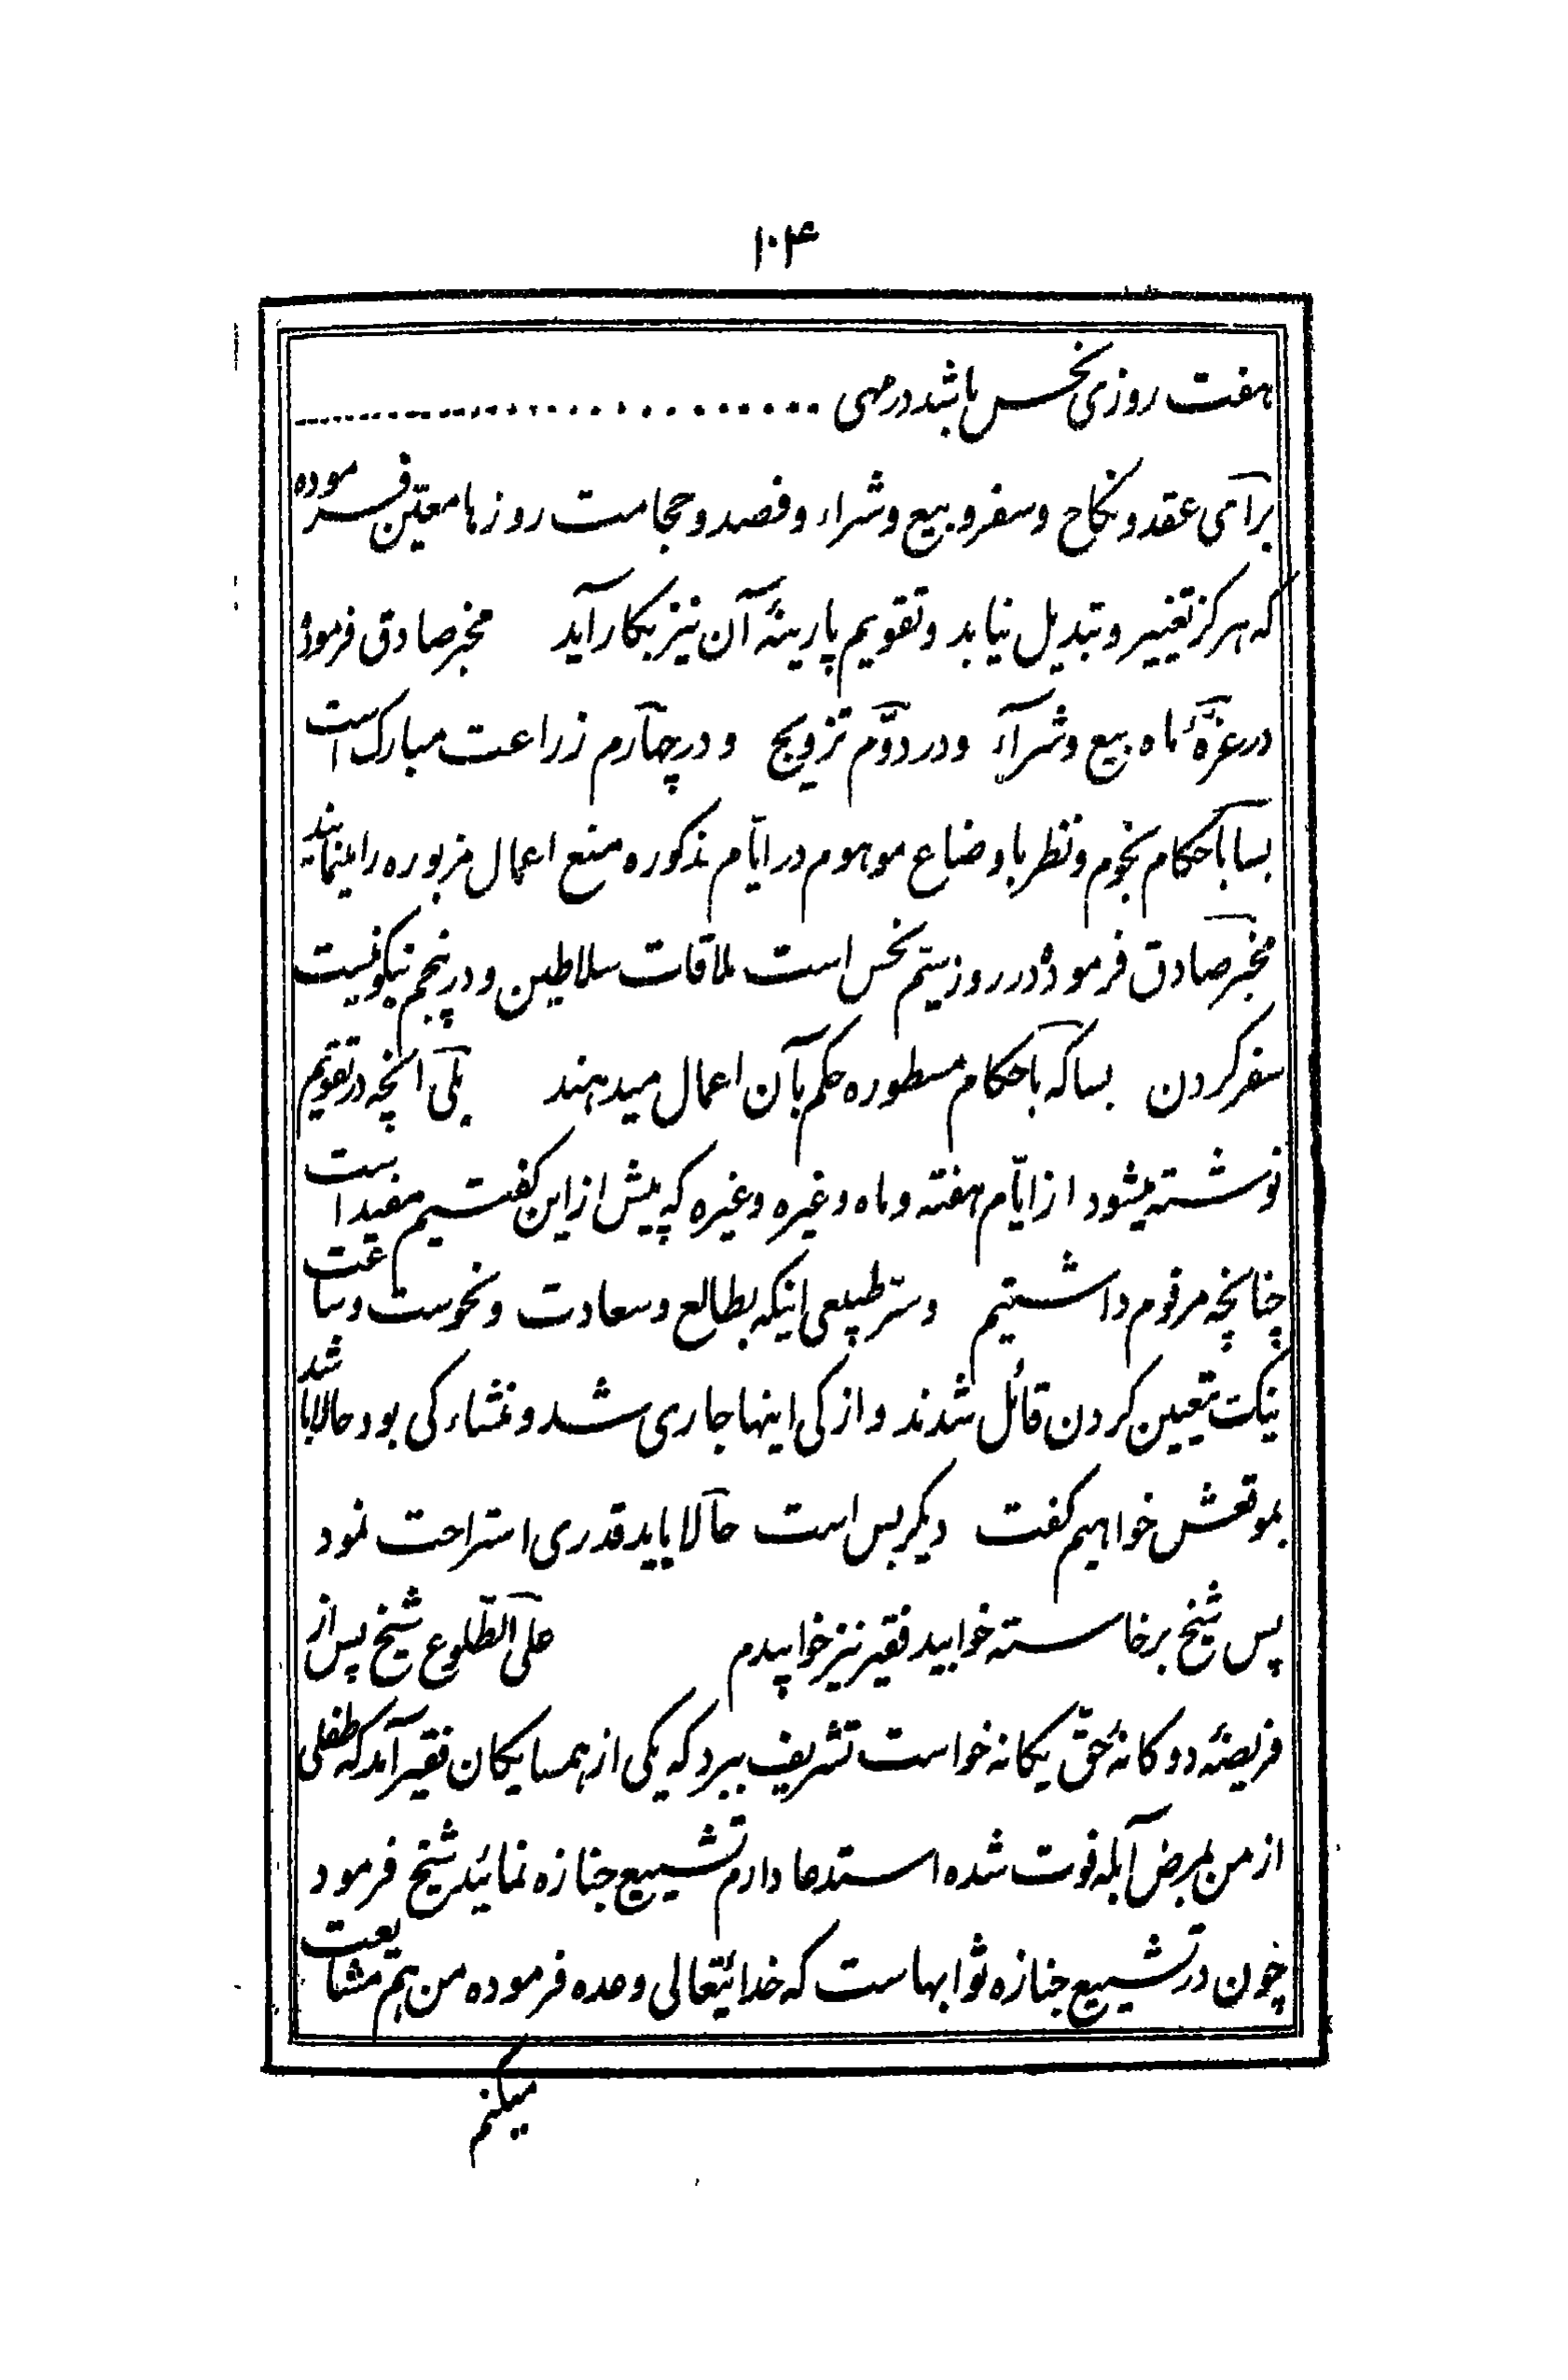 ۱۰۴
هفت روزی نحس باشد در مهی ..............................
برای عقد و نکاح و سفر و بیع و شراء و فصد و حجامت روزها معیّن فرموده
که هرکز تغییر و تبدیل نیابد و تقویم پارینهٔ آن نیز بکار آید مخبر صادق فرموده
در غرّهٔ ماه بیع و شرآء و در دوّم تزویج و در چهارم زراعت مبارک است
بسا باحکام نجوم و نظر باوضاع موهوم در ایّام مذکوره منع اعمال مزبوره را مینمایند
مخبر صادق فرموده در روز سیّم نحس است ملاقات سلاطین و در پنجم نیکو نیست
سفر کردن بسا که باحکام مسطوره حکم بآن اعمال میدهند بلی آنچه در تقویم
نوشته میشود از ایّام هفته و ماه و غیره و غیره که پیش از این کفتیم مفید است
چنانچه مرقوم داشتیم و سرّ طبیعی اینکه بطالع و سعادت و نحوست و ساعت
نیک تعیین کردن قائل شدند و از کی اینها جاری شد و منشاء کی بود حالا باشد
بموقعش خواهیم کفت دیکر بس است حالا باید قدری استراحت نمود
پس شیخ برخاسته خوابید فقیر نیز خوابیدم علی الطّلوع شیخ پس از
فریضهٔ دوکانهٔ حقّ یکانه خواست تشریف ببرد که یکی از همسایکان فقیر آمد که طفلی
از من بمرض آبله فوت شده استدعا دارم تشییع جنازه نمائید شیخ فرمود
چون در تشییع جنازه ثوابهاست که خدایتعالی وعده فرموده من هم مشایعت
میکنم